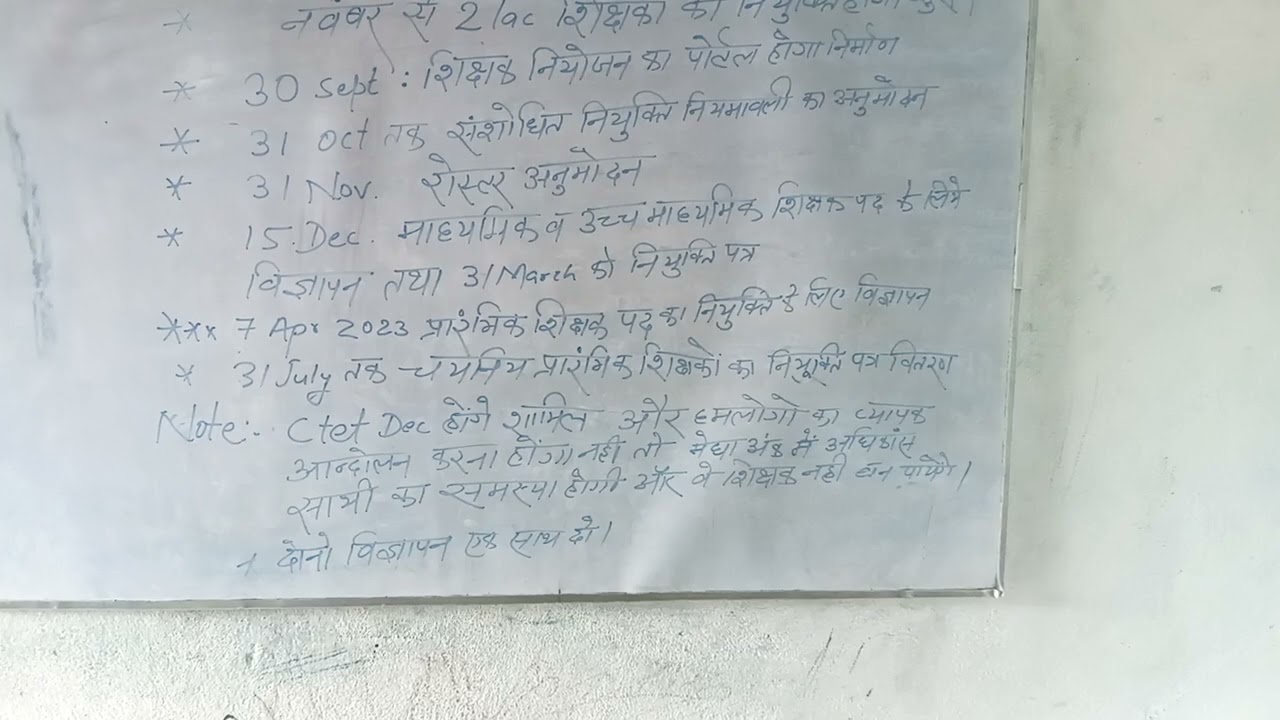 * नवंबर से 2 lac शिक्षकों की नियुक्ति होगी
* 30 Sept : शिक्षक नियोजन का पोर्टल होगा निर्माण
* 31 Oct तक संशोधित नियुक्ति नियमावली का अनुमोदन
* 31 Nov. रोस्टर अनुमोदन
* 15. Dec. माध्यमिक व उच्च माध्यमिक शिक्षक पद के लिये
विज्ञापन तथा 31 March को नियुक्ति पत्र
*** 7 Apr 2023 प्रारंभिक शिक्षक पद का नियुक्ति के लिए विज्ञापन
* 31 July तक चयनिय प्रारंभिक शिक्षकों का नियुक्ति पत्र वितरण
Note:- Ctet Dec होंगे शामिल और हमलोगो का व्यापक
आन्दोलन करना होगा नहीं तो मेधा अंक में अधिकांस
साथी का समस्या होगी और वे शिक्षक नहीं बन पायेंगे।
+ दोनो विज्ञापन एक साथ दो।